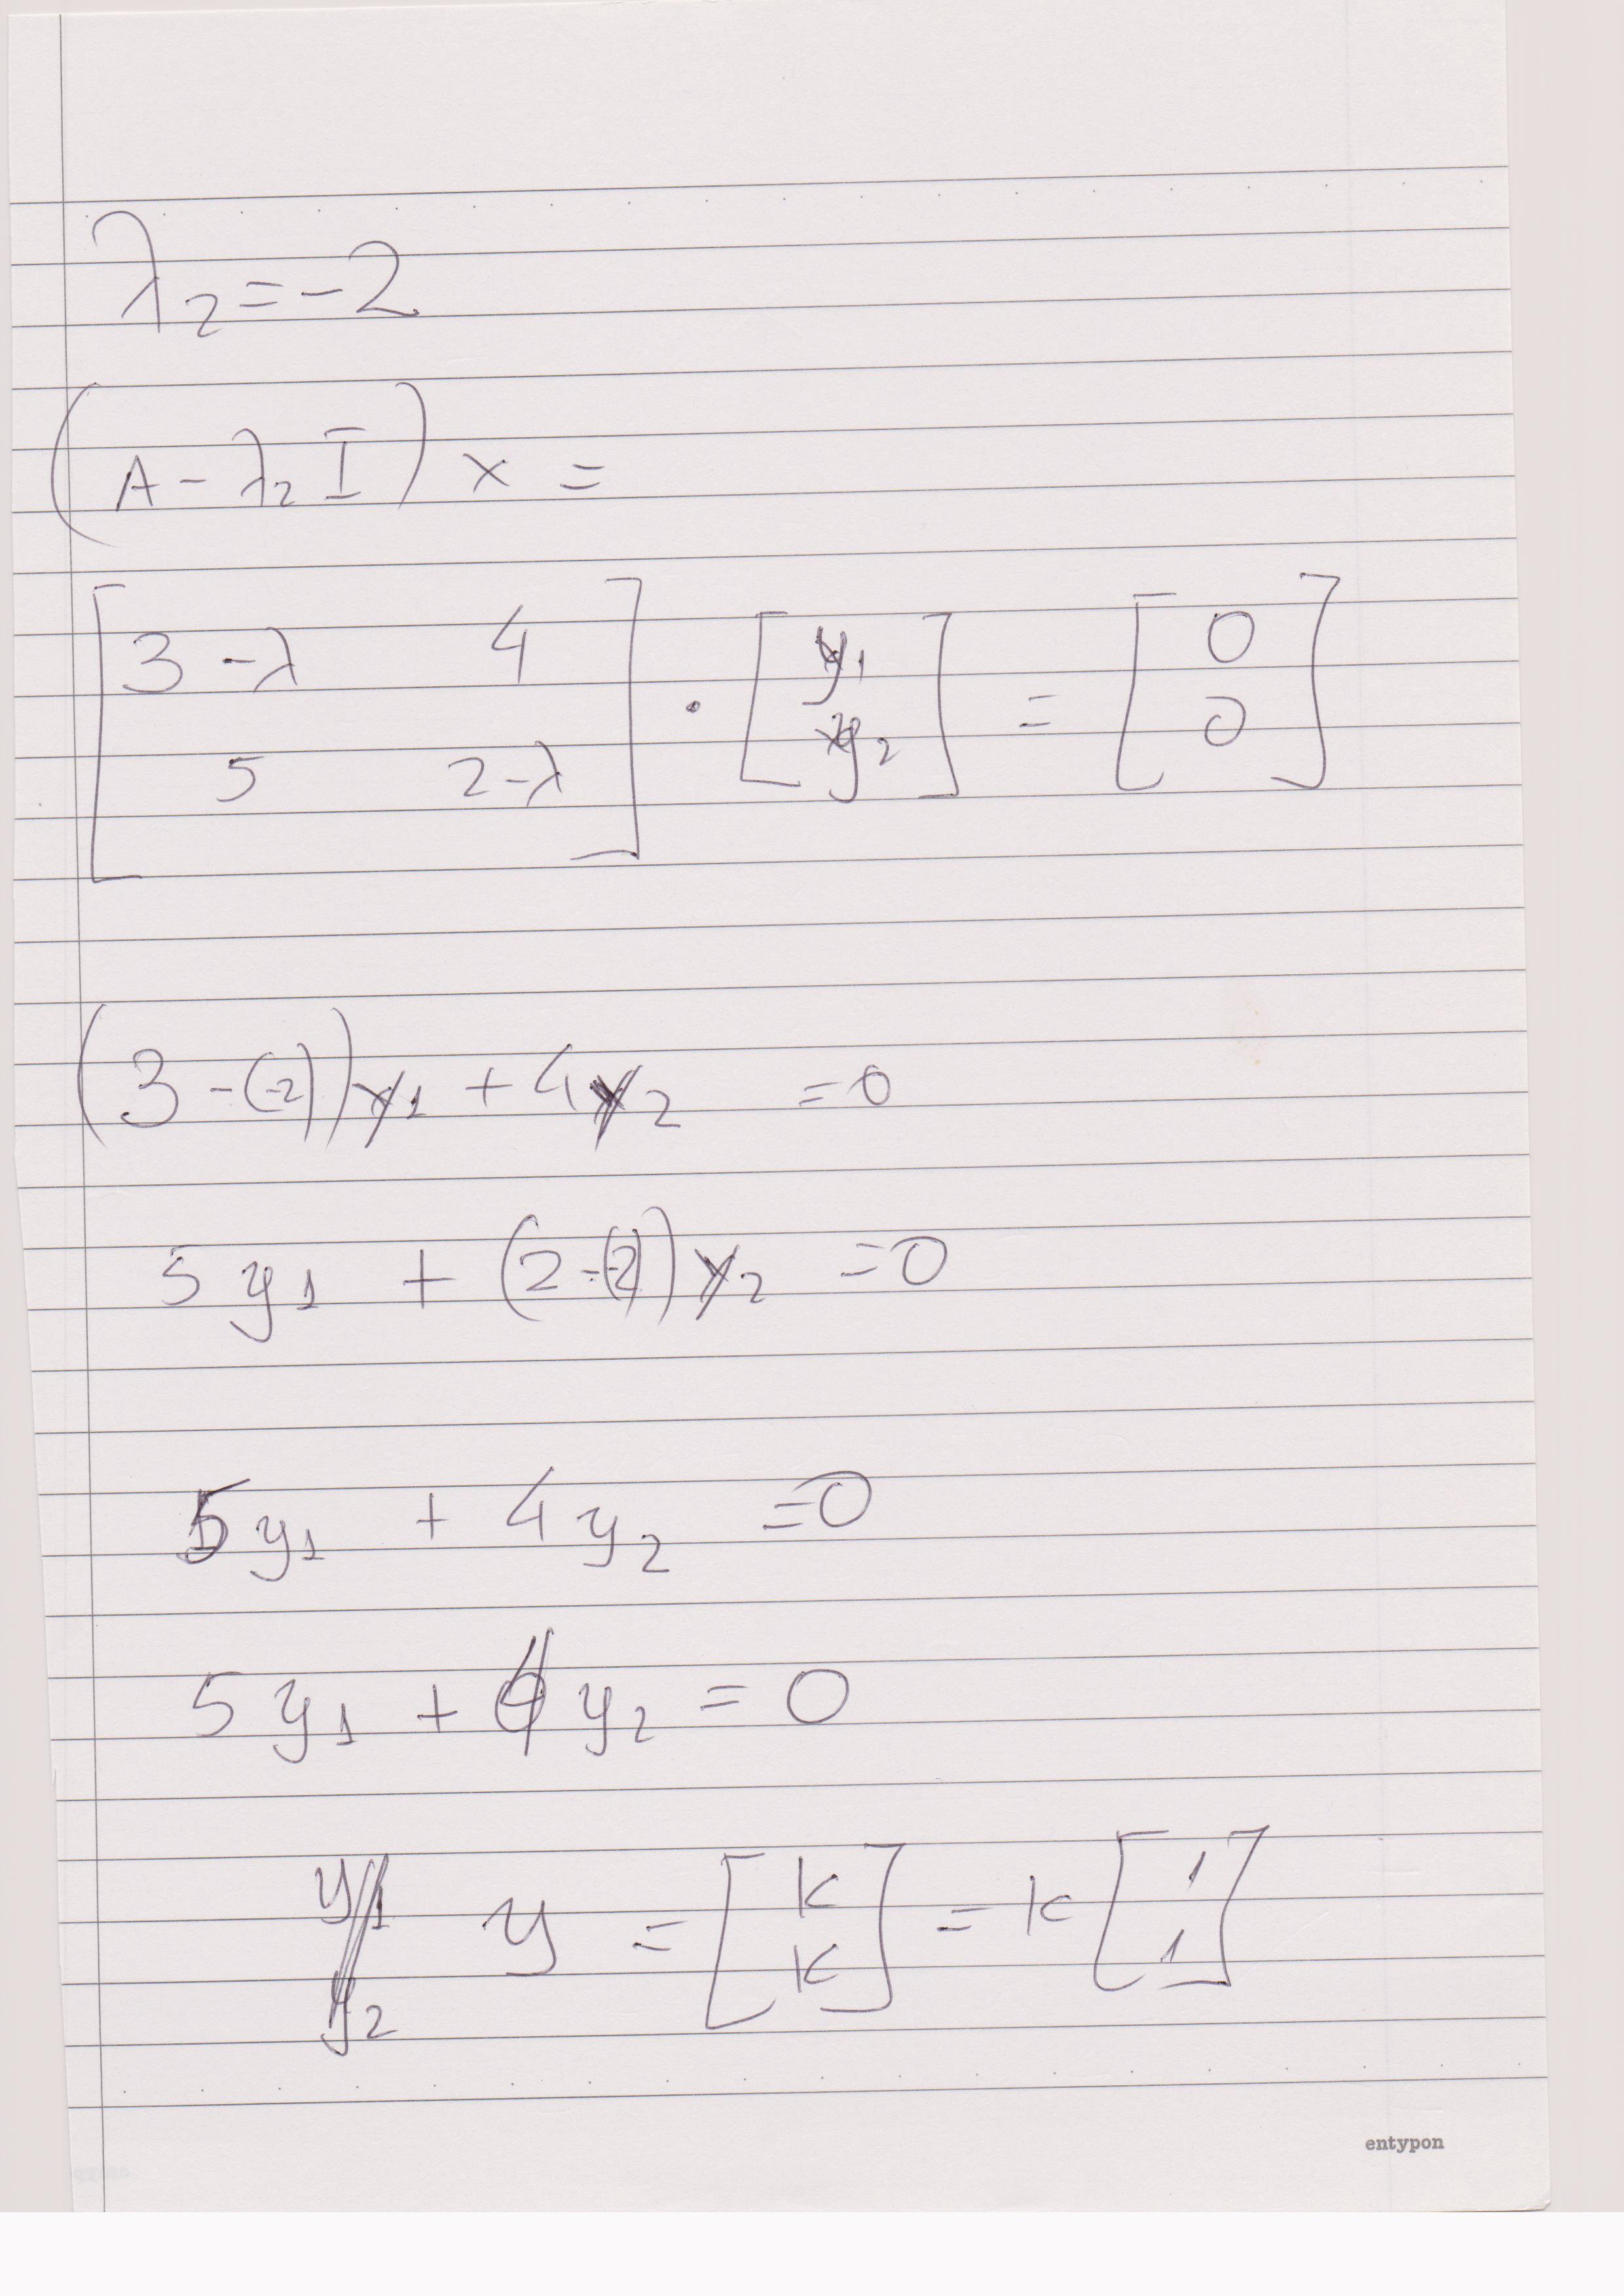 λ₂ = -2
(A - λ₂ I) x =
[3 - λ 4; 5 2 - λ] · [y₁; y₂] = [0; 0]
(3 - (-2)) y₁ + 4 y₂ = 0
5 y₁ + (2 - (-2)) y₂ = 0
5 y₁ + 4 y₂ = 0
5 y₁ + 4 y₂ = 0
y = [k; k] = k [1; 1]
entypon